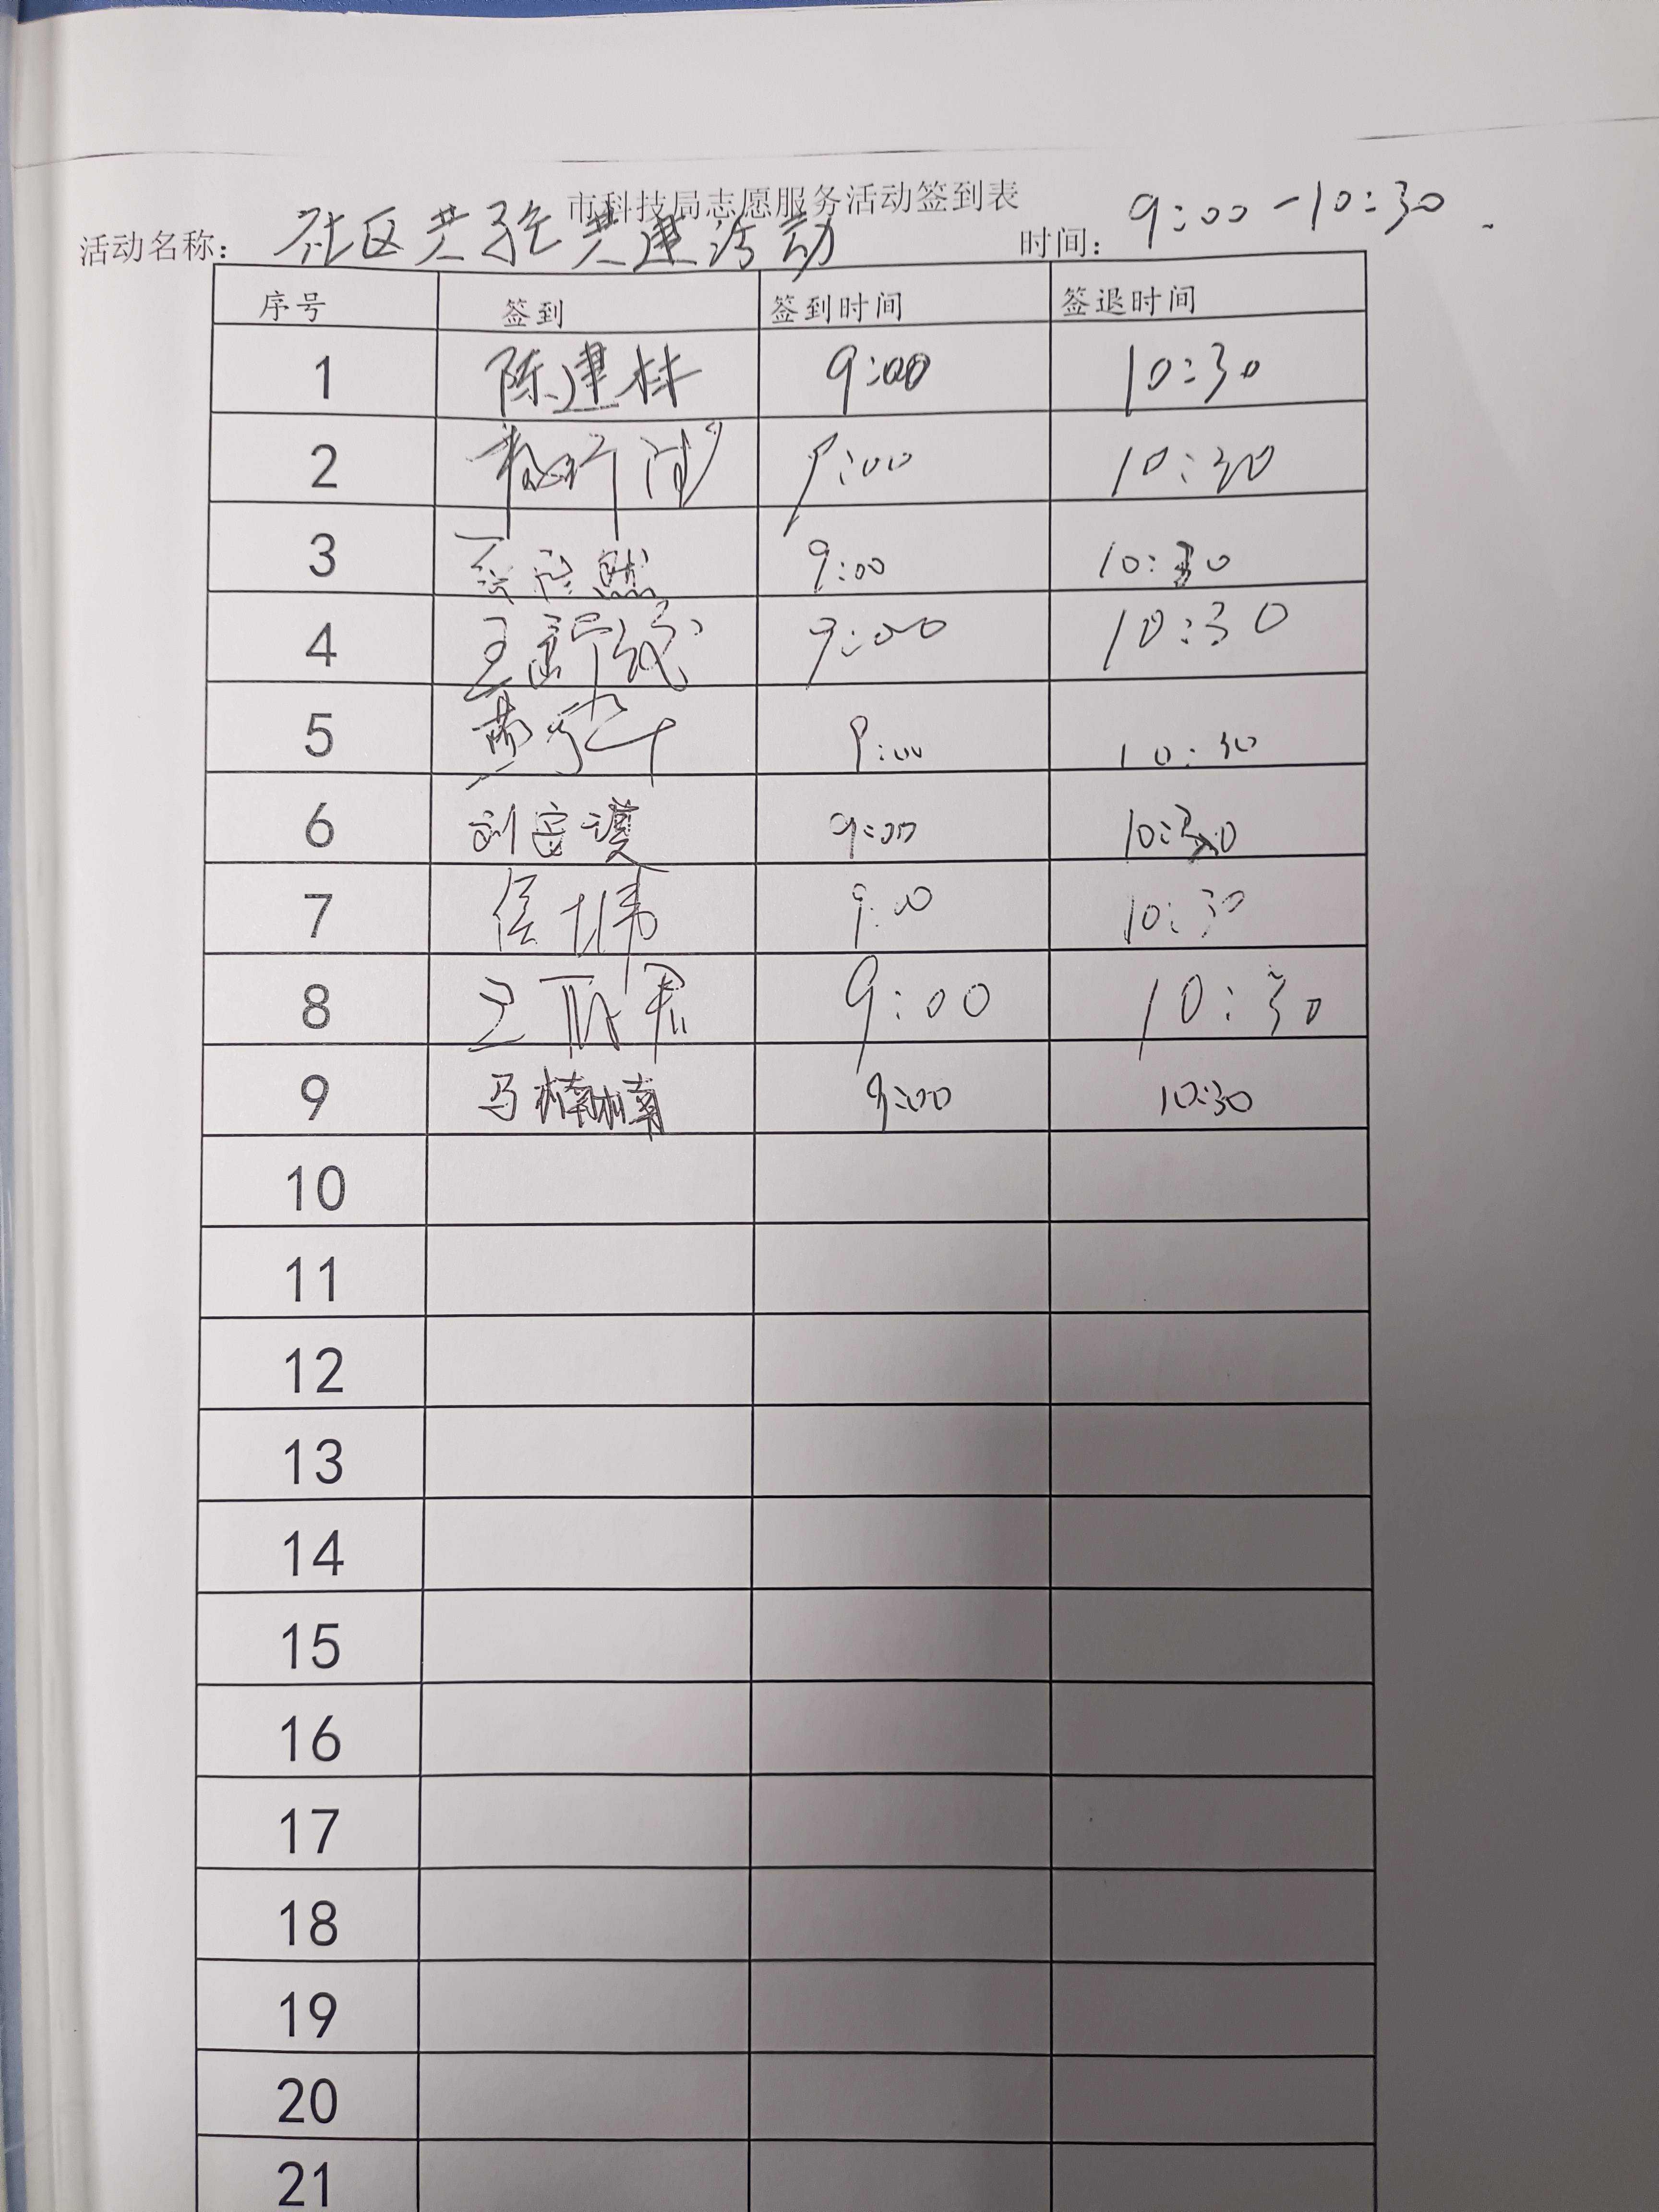 市科技局志愿服务活动签到表
活动名称： 社区共驻共建活动 时间： 9:00-10:30
序号 签到 签到时间 签退时间
1 陈建林 9:00 10:30
2 9:00 10:30
3 9:00 10:30
4 王 9:00 10:30
5 9:00 10:30
6 刘 9:00 10:30
7 侯 9:00 10:30
8 王 9:00 10:30
9 马楠楠 9:00 10:30
10
11
12
13
14
15
16
17
18
19
20
21